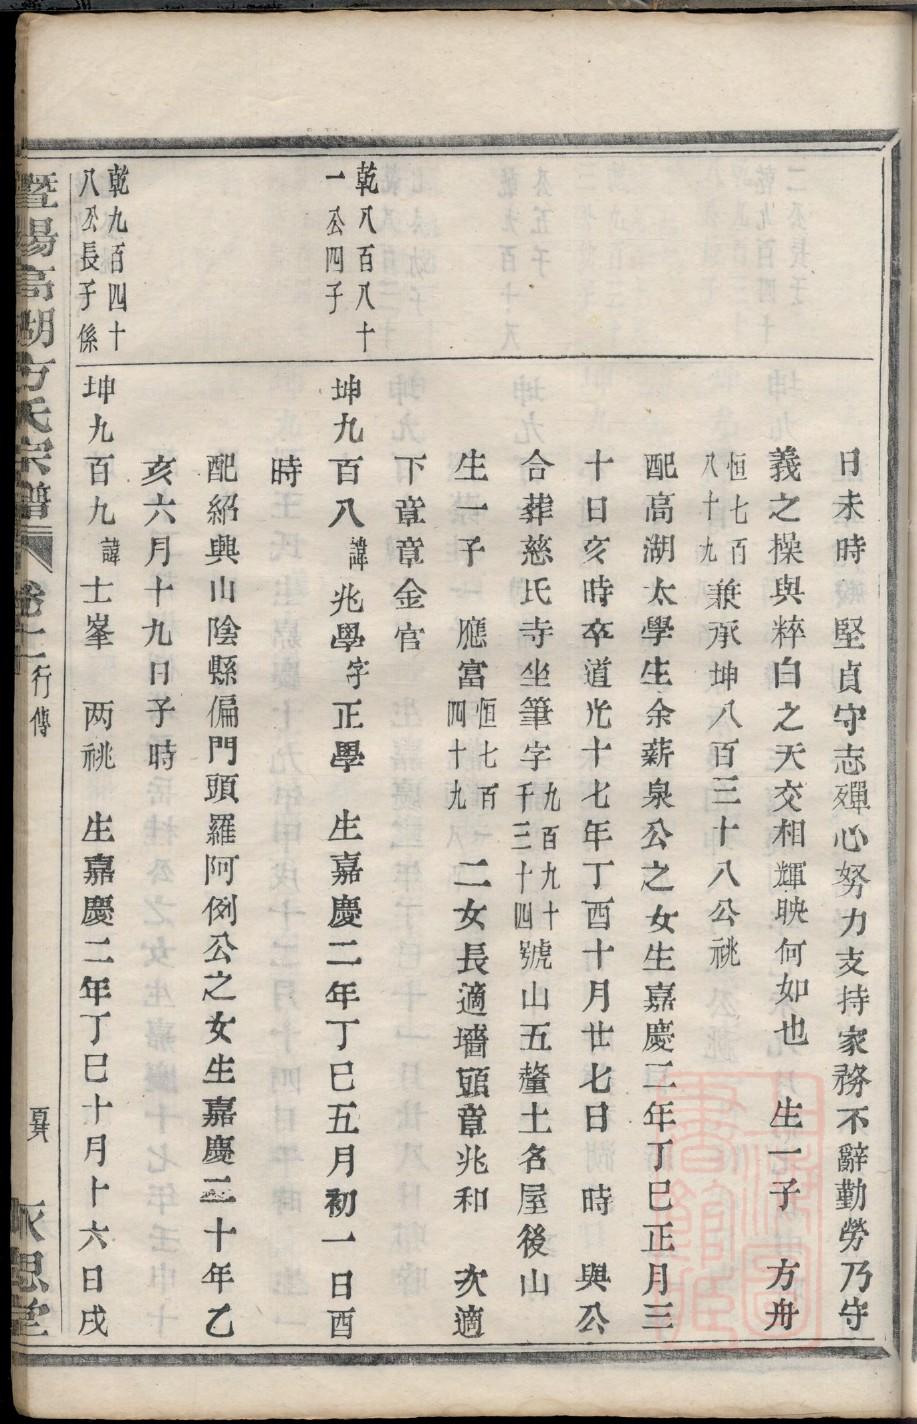 日未時堅貞守志殫心努力支持家務不辭勤勞乃守
義之操與粹白之天交相輝映何如也　生一子　方舟
恒七百八十九兼承坤八百三十八公祧
配高湖太學生余薪泉公之女生嘉慶二年丁巳正月三
十日亥時卒道光十七年丁酉十月廿七日　時　與公
合葬慈氏寺坐筆字九百九十千三十四號山五釐土名屋後山
生一子　應富恒七百四十九　二女長適墻頭章兆和　次適
下章章金官
乾八百八十一公四子
坤九百八諱兆學字正學　生嘉慶二年丁巳五月初一日酉
時
配紹興山陰縣偏門頭羅阿例公之女生嘉慶二十年乙
亥六月十九日子時
乾九百四十八公長子係
坤九百九諱士峯　两祧　生嘉慶二年丁巳十月十六日戌
暨陽高湖方氏宗譜　卷十　行傳　永思堂